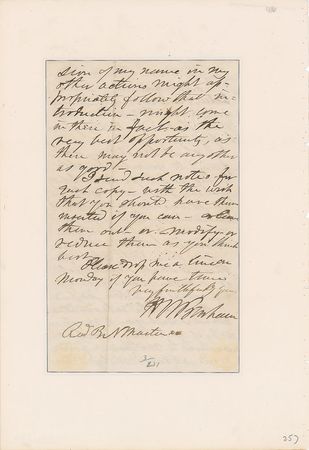 sion of my name in my
other actions might ap-
propriately follow that in-
troduction - might come
in there in fact as the
very best opportunity, as
there may not be any other
as good -
I send such notes for
each copy - with the wish
that you should have them
inserted if you can -
them out - or modify or
reduce them as you think
best
Please drop me a line on
Monday if you have time
very faithfully yours
H W Benham
Revd B N Martin
2
257